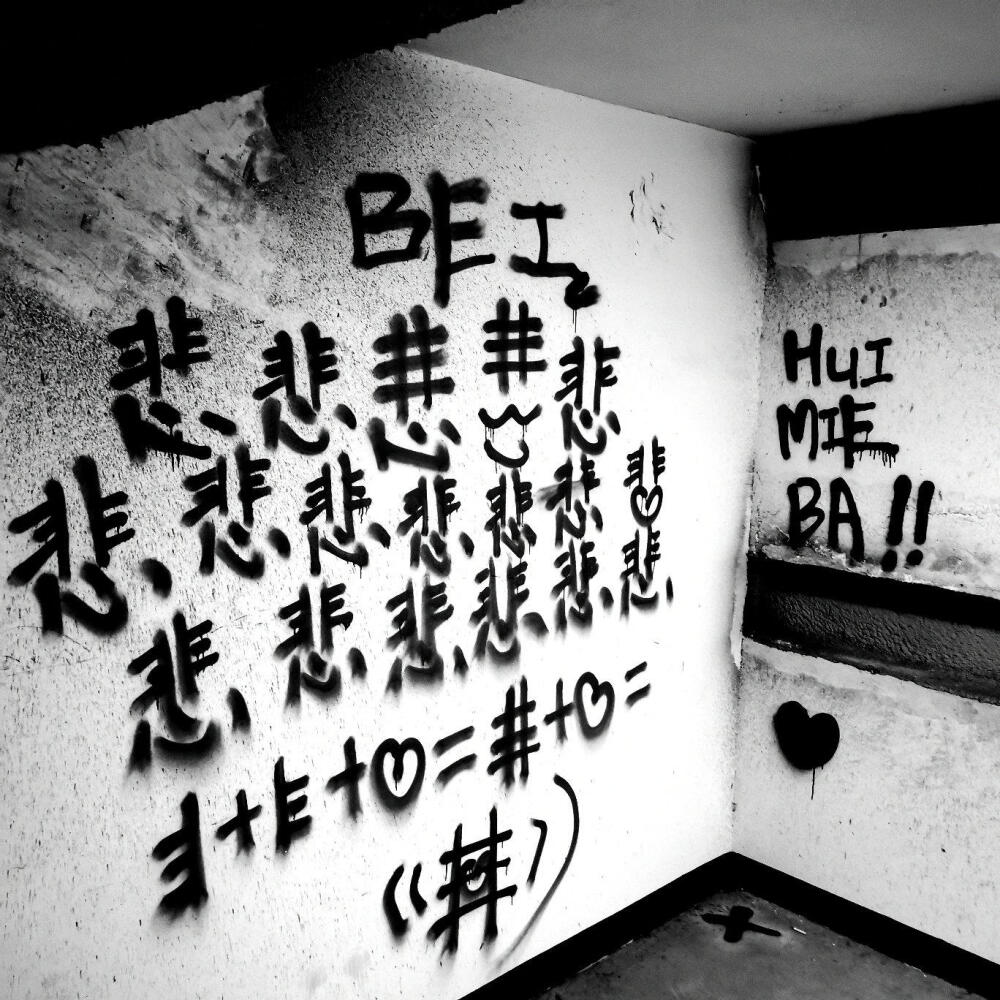 BEI
悲悲悲悲悲
悲悲悲悲悲悲悲
悲悲悲悲悲悲
ヨ+E+♡=#+♡=
((井))
HUI
MIE
BA!!